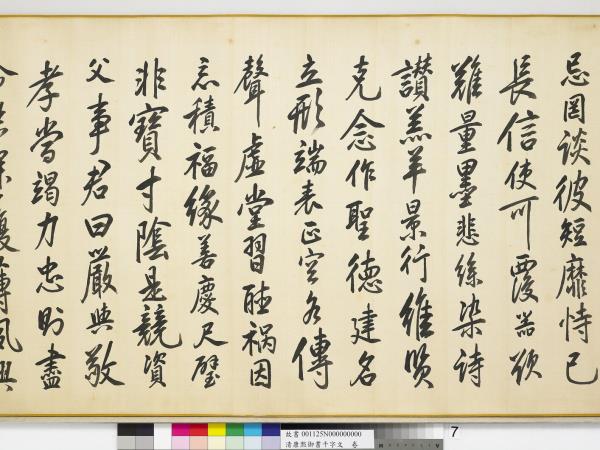 忘罔談彼短靡恃己
長信使可覆器欲
難量墨悲絲染詩
讚羔羊景行維賢
克念作聖德建名
立形端表正空谷傳
聲虛堂習聽禍因
惡積福緣善慶尺璧
非寶寸陰是競資
父事君曰嚴與敬
孝當竭力忠則盡
命臨深履薄夙興
故書 001125N000000000
清康熙御書千字文 卷
7